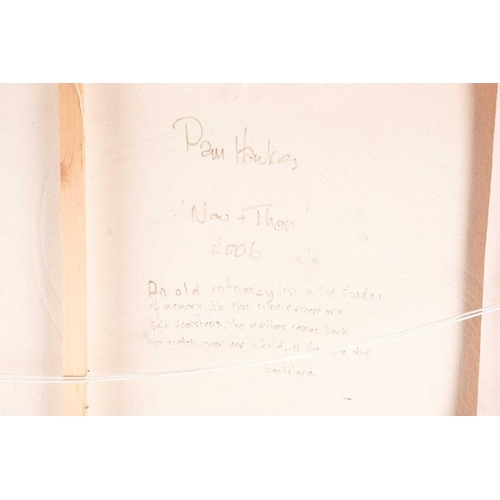 Pam Hawkes
'Now + Then'
2006
An old intamacy lost in the shades
of memory. In this silence there are
footsteps, the mother comes back
to watch over her child, as she once did.